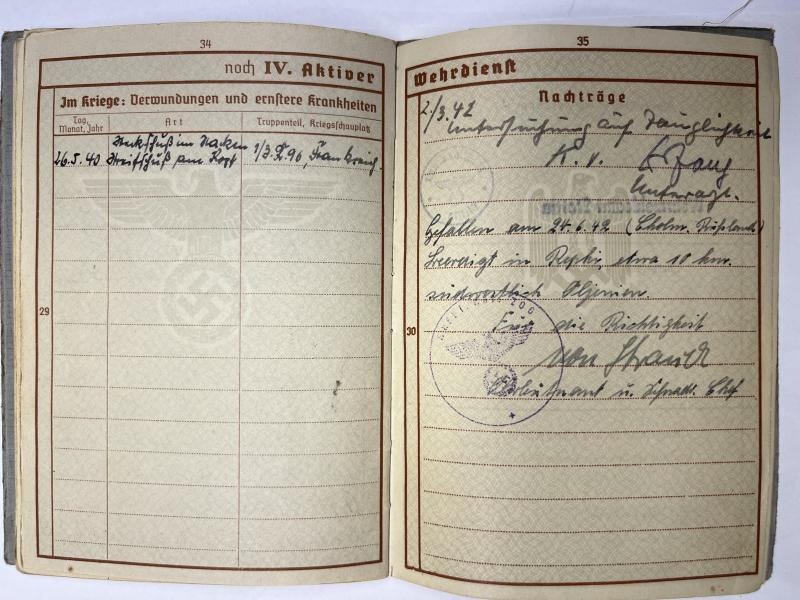 34
noch IV. Aktiver
Im Kriege: Verwundungen und ernstere Krankheiten
Tag, Monat, Jahr
Art
Truppenteil, Kriegsschauplatz
im Nacken
26.5.40 Streifschuß am Kopf 1/J.R.96, Frankreich.
29
35
Wehrdienst
Nachträge
2./3.42
Untersuchung auf Tauglichkeit
K.v.
Unterarzt.
Gefallen am 24.6.42 (Cholm, Rußland)
Beerdigt in etwa 10 km.
südwestlich
30
Für die Richtigkeit
von
Oberleutnant u. Schwadr. Chef